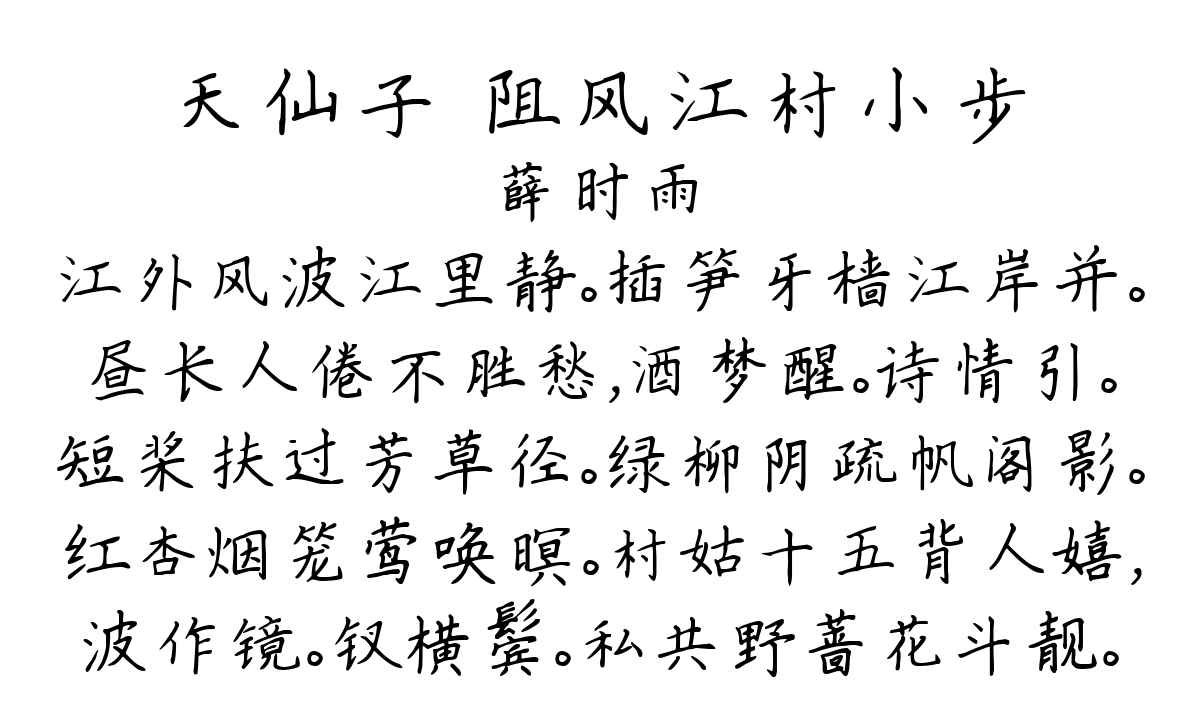 天仙子 阻风江村小步
薛时雨
江外风波江里静。插笋牙樯江岸并。
昼长人倦不胜愁,酒梦醒。诗情引。
短桨扶过芳草径。绿柳阴疏帆阁影。
红杏烟笼莺唤暝。村姑十五背人嬉,
波作镜。钗横鬓。私共野蔷花斗靓。